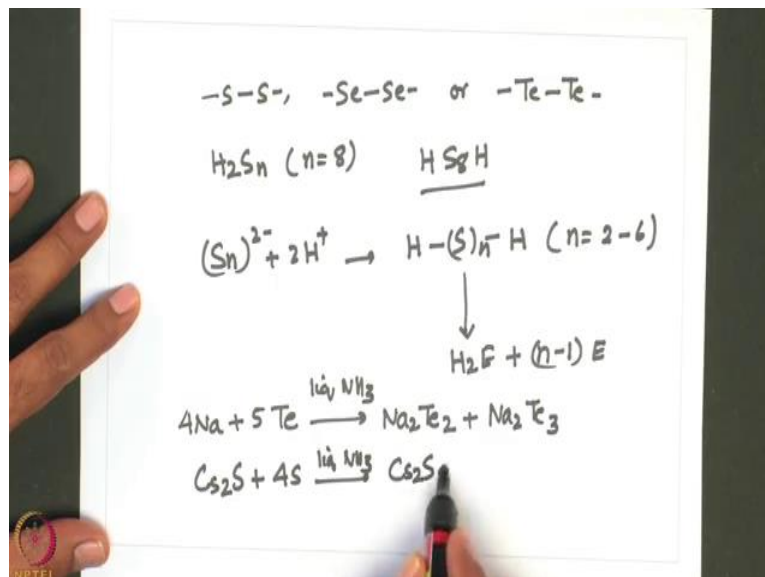 -S-S-, -Se-Se- or -Te-Te-
H₂Sn (n=8) HS₈H
(Sn)²⁻ + 2H⁺ → H-(S)n-H (n=2-6)
↓
H₂E + (n-1) E
4Na + 5Te liq NH₃ → Na₂Te₂ + Na₂Te₃
Cs₂S + 4S liq NH₃ → Cs₂S
NPTEL